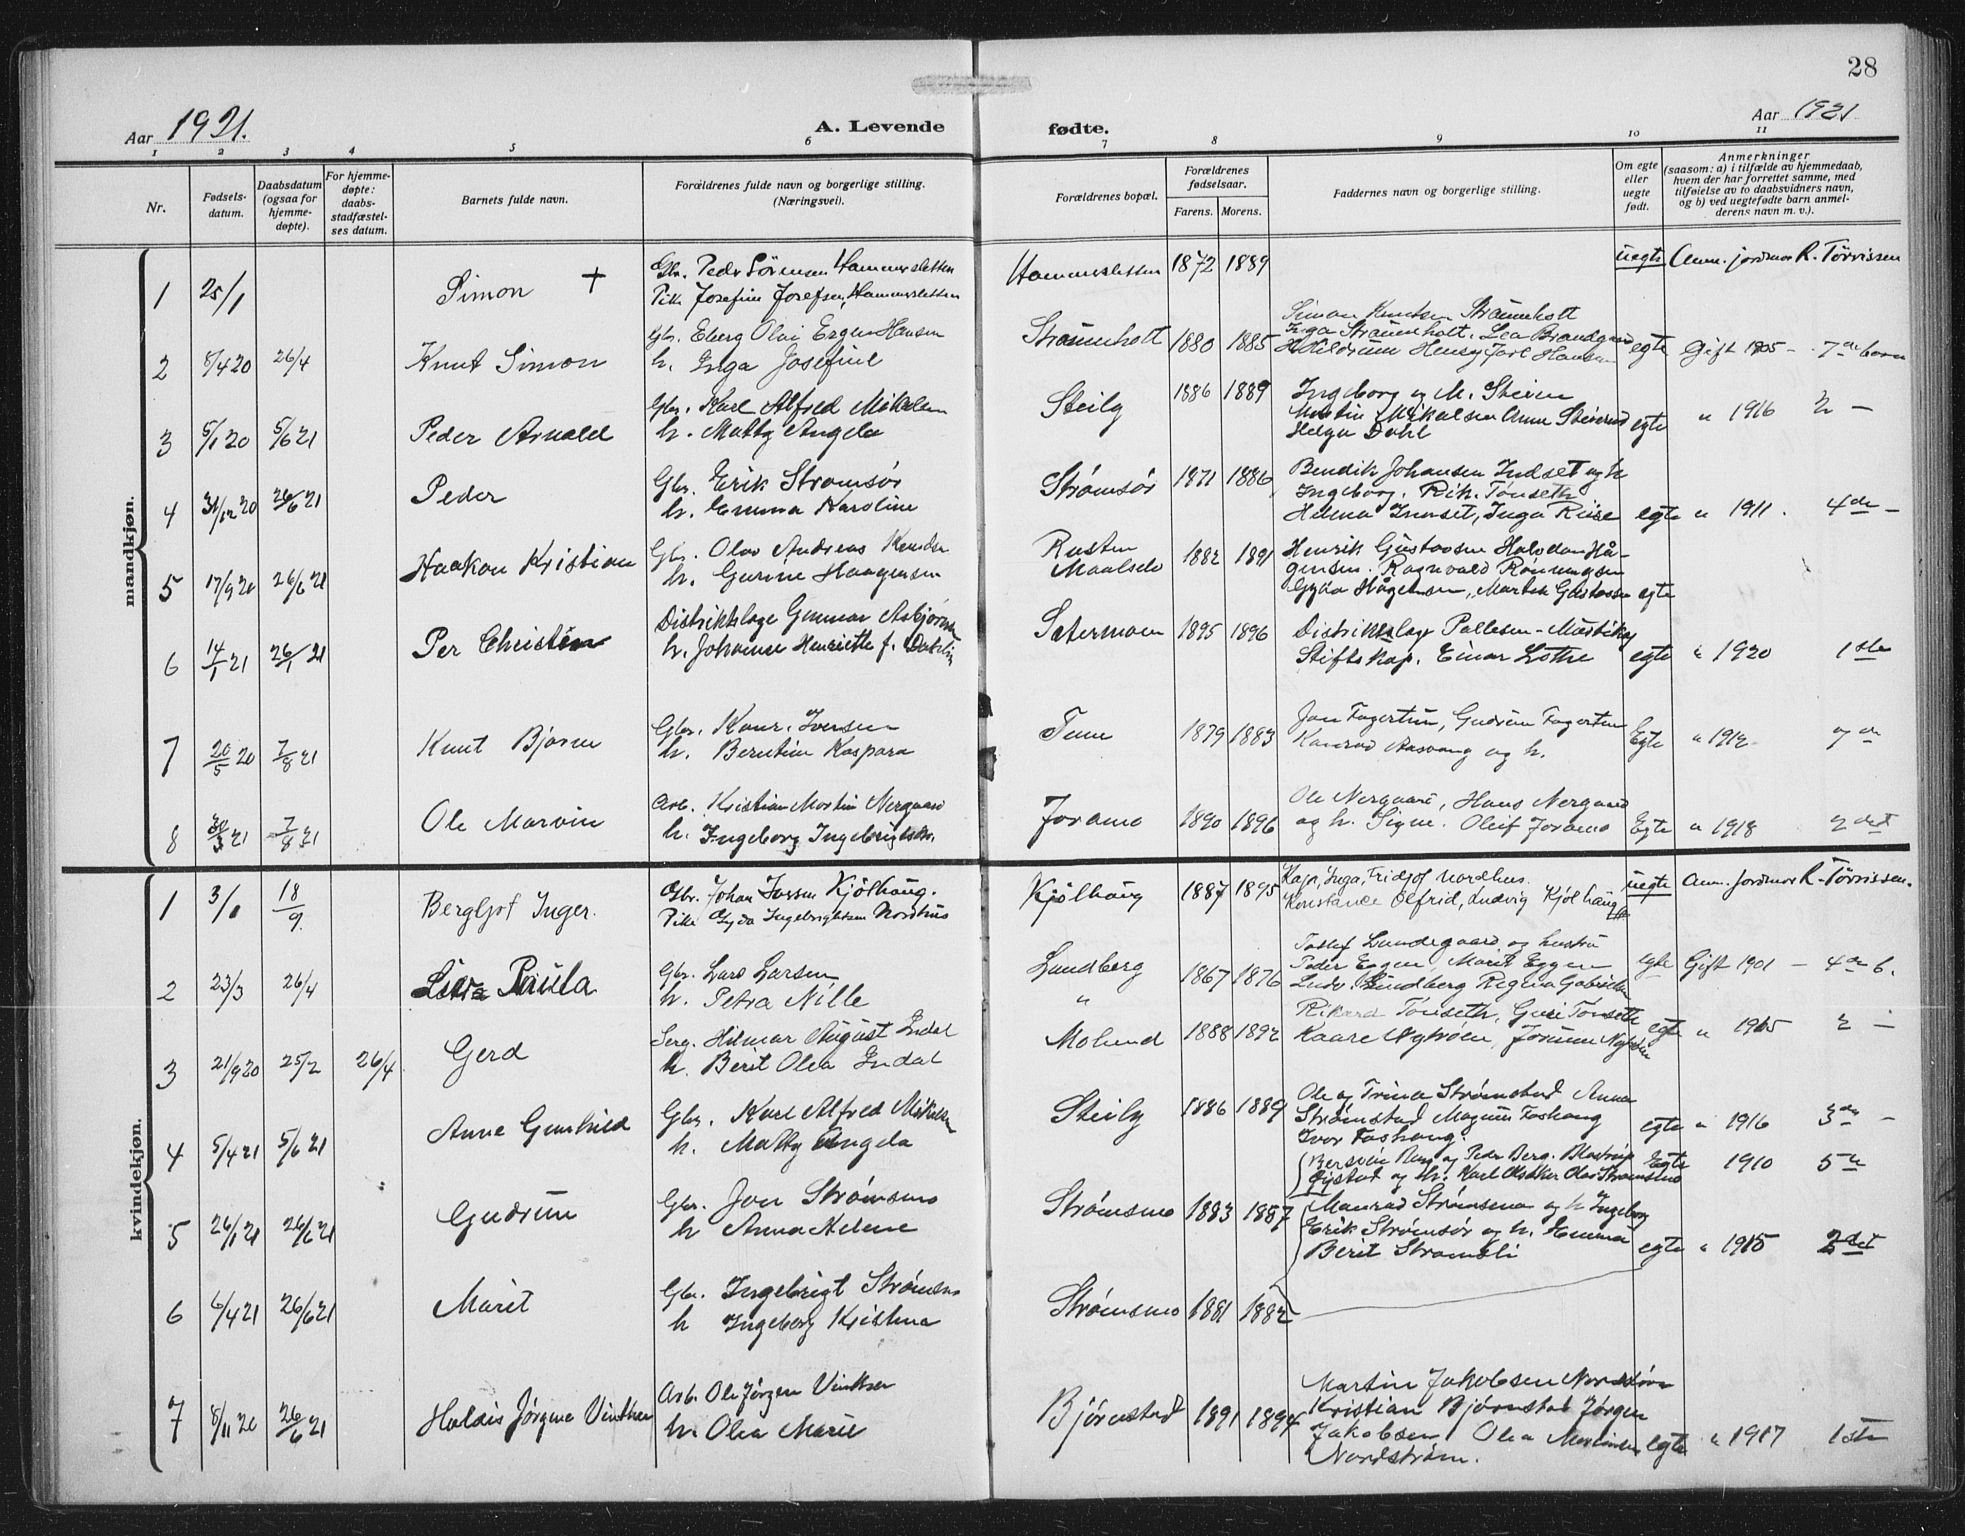 28
Aar 1921.
A. Levende fødte.
Aar 1921
1 2 3 4 5 6 7 8 9 10 11
Nr.
Fødsels-
datum.
Daabsdatum
(ogsaa for
hjemme-
døpte).
For hjemme-
døpte:
daabs-
stadfæstel-
ses datum.
Barnets fulde navn.
Forældrenes fulde navn og borgerlige stilling.
(Næringsvei).
Forældrenes bopæl.
Forældrenes
fødselsaar.
Farens. Morens.
Faddernes navn og borgerlige stilling.
Om egte
eller
uegte
født.
Anmerkninger
(saasom: a) i tilfælde av hjemmedaab,
hvem der har forrettet samme, med
tilføielse av to daabsvidners navn,
og b) ved uegtefødte barn anmel-
derens navn m. v.).
mandkjøn.
1 25/1 Simon +
Gbr. Peder Sörensen Hammersletten
Pike Josefine Josefsen, Hammersletten
Hammersletten 1872 1889
uegte Anm. jordmor R. Törrissen
2 8/4 20 26/4 Knut Simon
Gbr. Eberg Olai Hansen
h. Inga Josefine
Straumholt 1880 1885
Simon Knutsen Straumholt
Inga Straumholt, Lea
Henry Jarl Hansen
egte Gift 1905 - 7de barn
3 5/1 20 5/6 21 Peder Arnold
Gbr. Karl Alfred Mikalsen
h. Matty Angela
Steily 1886 1889
Ingeborg og M. Steien
Martin Mikalsen Anne
Helga Dahl
egte " 1916 2 -
4 31/12 20 26/6 21 Peder
Gbr. Erik Strømsør
h. Emma Karoline
Strømsør 1871 1886
Bendik Johansen Indset og h
Ingeborg. Rik. Tønseth
Helena Indset, Inga Riise
egte " 1911. 4de -
5 17/9 20 26/6 21 Haakon Kristian
Gbr. Olav Andreas Knudsen
h. Gurine Haagensen
Rusten
Maalselv 1882 1891
Henrik Gustavsen Halvdan Hå-
gensen. Ragnvald Rønningsen
Gyda Hågensen, Martek Gustavsen
egte
6 14/1 21 26/1 21 Per Christian
Distriktslæge Gunnar Asbjørnsen
h. Johanne Henriette f. Dahlin
Setermoen 1895 1896
Distriktslæge Pallesen - Mastika
Stiftskap. Einar Lothe
egte " 1920 1ste
7 20/5 20 7/8 21 Knut Bjarne
Gbr. Konr. Iversen
h. Berntine Kaspara
Tune 1879 1883
Jon Fagertun, Gudrun Fagertun
Konrad Aasvang og h.
Egte " 1912 7de
8 21 7/8 21 Ole Marvin
Arb. Kristian Martin Nergaard
h. Ingeborg Ingebrigtsdtr.
Foramo 1890 1896
Ole Nergaard, Hans Nergaard
og h. Signe. Oluf Foramo
Egte " 1918 2det
kvindekjøn.
1 3/1 18/9 Bergljot Inger.
Gbr. Johan Iversen Kjölhaug.
Pike Gyda Ingebrigtsen Nordhus
Kjölhaug 1887 1895
Kaja, Inga, Fridjof Nordhus.
Konstanse Olfrid, Ludvig Kjölhaug
uegte Anm. Jordmor R. Törrissen.
2 23/3 26/4 Paula
Gbr. Lars Larsen
h. Petra Nille
Lundberg
" 1867 1876
Tollef Lundegaard og hustru
Peder Eggen, Marit Eggen
Ludv. Lundberg Regina Gabrielsen
egte Gift 1901 - 4de b.
3 21/9 20 25/2 26/4 Gerd
Serg. Hilmar August Endal
h. Berit Olea Endal
Molund 1888 1892
Rikard Tønseth, Guri Tønseth
Kaare Nytrøen, Jorunn Nytrøen
egte " 1915 2 -
4 5/4 21 5/6 21 Anne Gunhild
Gbr. Karl Alfred Mikalsen
h. Matty Angela
Steily 1886 1889
Ole og Trina Strømstad Anna
Strømstad Magnus Foshaug
Ivar Foshaug.
egte " 1916 3de -
5 26/1 21 26/6 21 Gudrun
Gbr. Jon Strømsmo
h Anna Helene
Strømsmo 1883 1887
Bersvein Berg og Peder Berg.
Øystad og h. Karl Olsåker Olav Strømsmo
Egte 1910 5te
Strømsmo og h Ingeborg
Erik Strømsør og h. Emma
Berit Strømsli
egte " 1915 2det
6 6/4 21 26/6 21 Marit
Gbr. Ingebrigt Strømsmo
h Ingeborg Kristina
Strømsmo 1881 1882
7 8/11 20 26/6 21 Haldis Jørgine Vinther
Arb. Ole Jörgen Vinther
h. Olea Marie
Bjørnstad 1891 1894
Martin Jakobsen Nordström
Kristian Bjørnstad Jørgen
Jakobsen Olea Martinsen
Nordstrøm.
egte " 1917 1ste